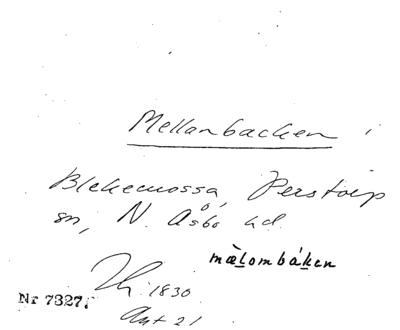 Mellanbacken i
Blekemossa, Perstorp
sn, N. Åsbo hd.
mæ̀lombákẹn
1830
Nr 7327.
Ant 21